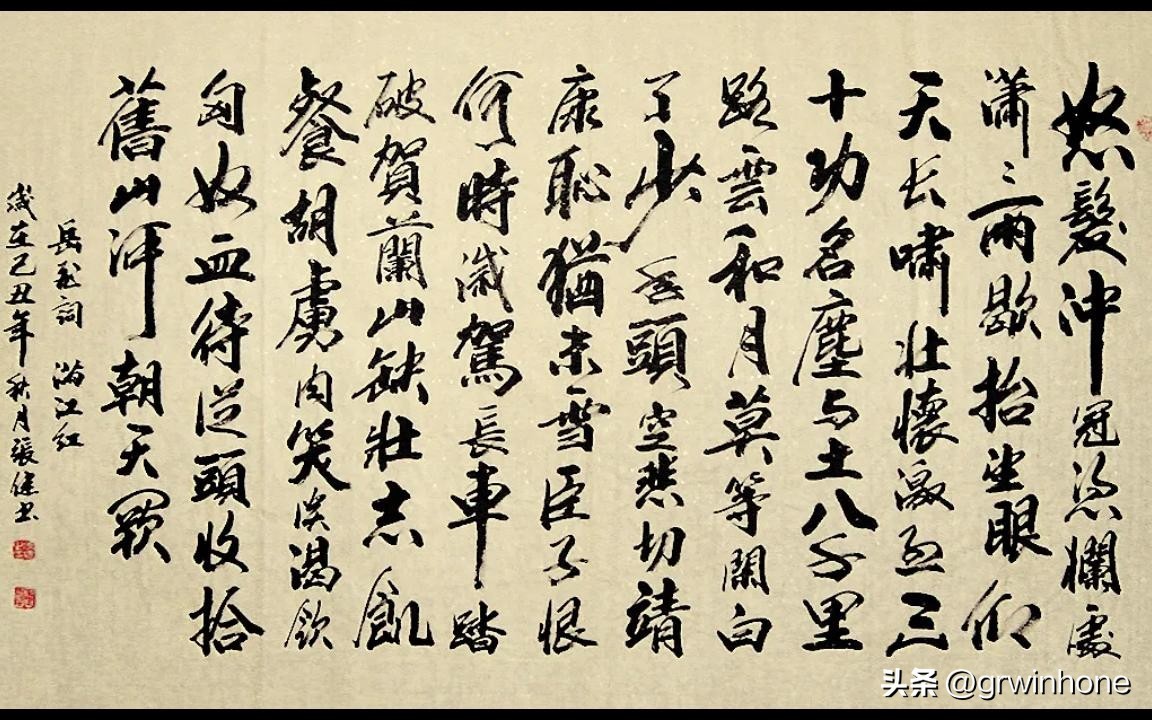 怒髮沖冠凭欄處
瀟〻雨歇抬望眼仰
天长嘯壯懷激烈三
十功名塵与土八千里
路雲和月莫等閑白
了少年頭空悲切靖
康恥猶未雪臣子恨
何時滅駕長車踏
破賀蘭山缺壯志飢
餐胡虜肉笑談渴飲
匈奴血待從頭收拾
舊山河朝天闕
岳飛詞 滿江红
歲在己丑年秋月張健书
头条 @grwinhone